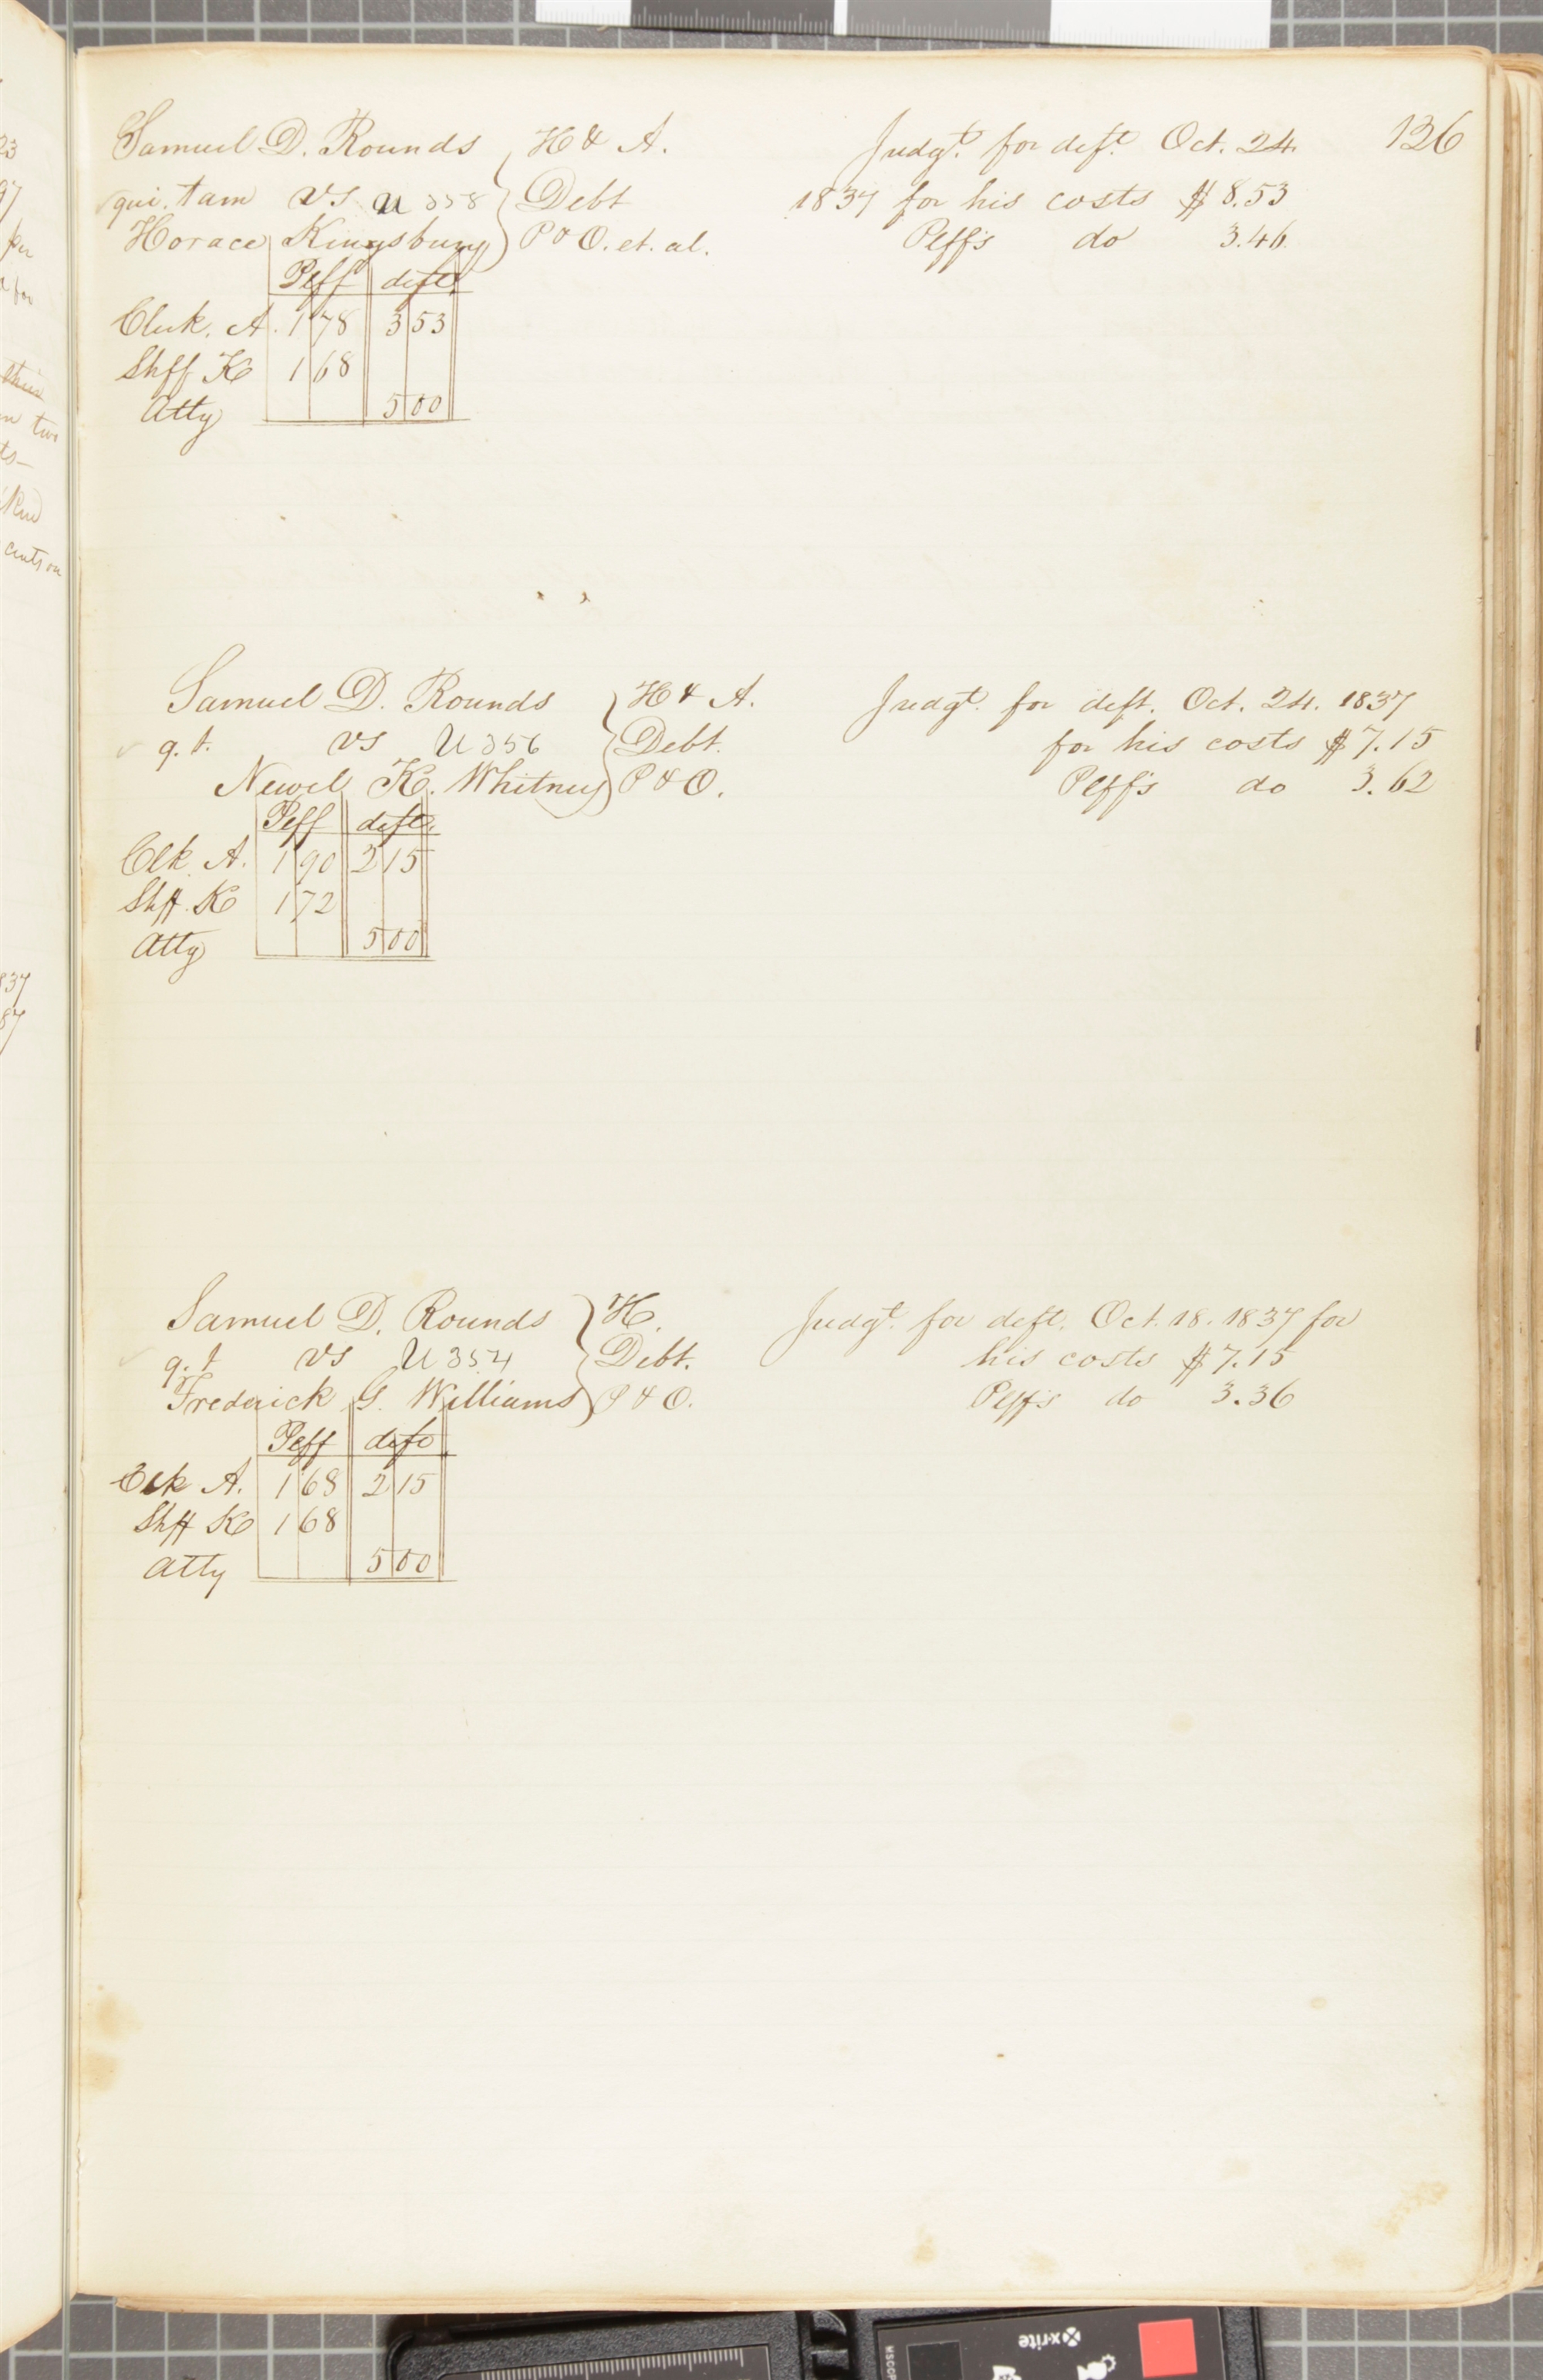 126
Samuel D. Rounds H & A. Judgt. for deft. Oct. 24
qui. tam vs U 358 Debt 1837 for his costs $ 8.53
Horace Kingsbury P & O. et. al. Plffs do 3.46
Plff deft
Clerk. A. 1 78 3 53
Shff K 1 68
Atty 5 00
Samuel D. Rounds H & A. Judgt. for deft. Oct. 24. 1837
q. t. vs U 356 Debt. for his costs $ 7.15
Newel K. Whitney P & O. Plffs do 3.62
Plff deft
Clk A. 1 90 2 15
Shff. K 1 72
Atty 5 00
Samuel D. Rounds H. Judgt. for deft. Oct. 18. 1837 for
q. t vs U 354 Debt. his costs $ 7.15
Frederick G. Williams P & O. Plffs do 3.36
Plff deft
Clk A. 1 68 2 15
Shff K 1 68
atty 5 00
23
97
per
for
in two
ts—
cents on
837
87
x·rite